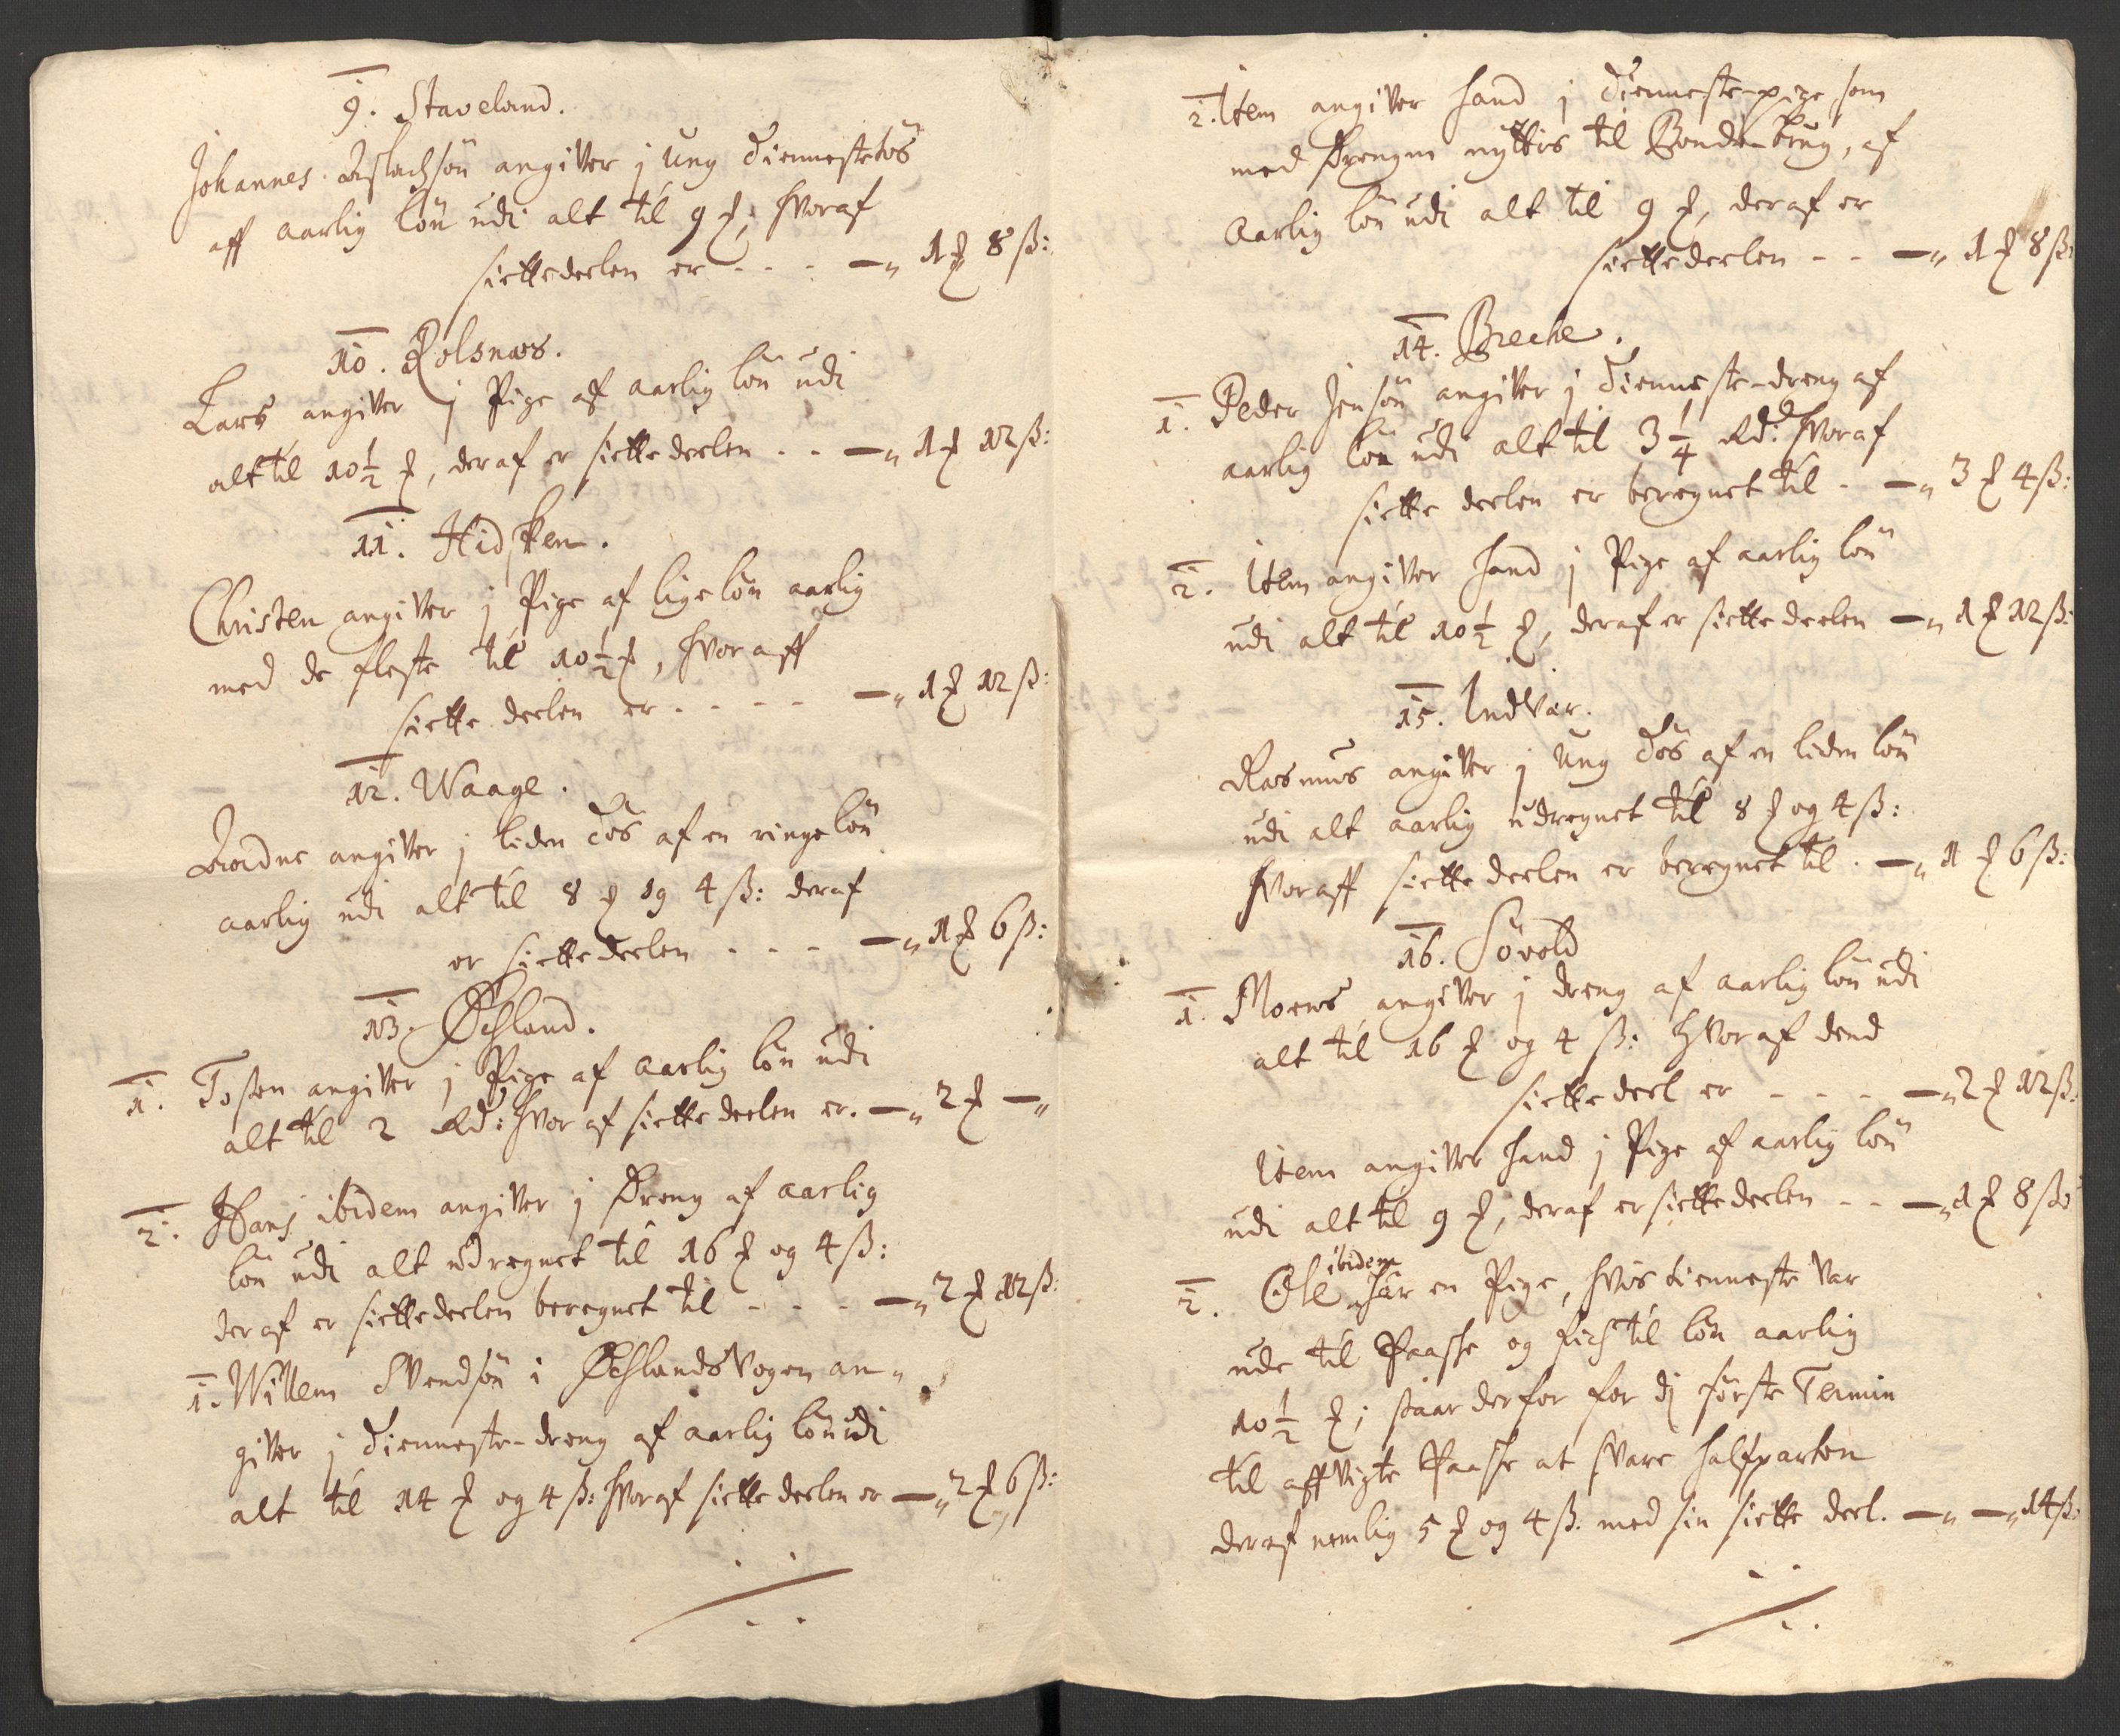 9. Staveland.
Johannes Aslachsön angiver j ung dienneste tös
aff aarlig lön udi alt til 9 ₰, hvoraf
siettedeelen er - - - - „ 1 ₰ 8 ß:
10. Rolsnæs.
Lars angiver j Pige af aarlig lön udi
alt til 10½ ₰, deraf er siette deelen - - - „ 1 ₰ 12 ß:
11. Hidsken.
Christen angiver j Pige af lige lön aarlig
med de fleste til 10½ ₰, hvoraff
siette deelen er - - - - - „ 1 ₰ 12 ß:
12. Waage.
angiver j liden tös af en ringe lön
aarlig udi alt til 8 ₰ og 4 ß: deraf
er siette deelen - - - - „ 1 ₰ 6 ß:
13. Øchland.
1. Tosten angiver j Pige af aarlig lön udi
alt til 2 Rd: hvoraf siette deelen er. - „ 2 ₰ - „
2. Hans ibidem angiver j Dreng af aarlig
lön udi alt udregnet til 16 ₰ og 4 ß:
deraf er siettedeelen beregnet til - - - - „ 2 ₰ 12 ß:
1. Willem Svendsön i Øchlandsvogen an-
giver j dienneste-dreng af aarlig lön udi
alt til 14 ₰ og 4 ß: hvoraf siette deelen er - „ 2 ₰ 6 ß:
2. Item angiver hand j dienneste-pige som
med Drengen nyttis til Bonde brug, af
aarlig lön udi alt til 9 ₰, deraf er
siettedeelen - - - „ 1 ₰ 8 ß:
14. Breche.
1. Peder Jensön angiver j dienneste-dreng af
aarlig lön udi alt til 3¼ Rd: hvoraf
siette deelen er beregnet til - - „ 3 ₰ 4 ß:
2. Item angiver hand j Pige af aarlig lön
udi alt til 10½ ₰, deraf er siette deelen - „ 1 ₰ 12 ß:
15. Indvær.
Rasmus angiver j ung tös af en liden lön
udi alt aarlig udregnet til 8 ₰ og 4 ß:
hvoraff siette deelen er beregnet til. - „ 1 ₰ 6 ß:
16. Sövold
1. Moens angiver j dreng af aarlig lön udi
alt til 16 ₰ og 4 ß: hvoraf dend
siette deel er - - - - „ 2 ₰ 12 ß:
Item angiver hand j Pige af aarlig lön
udi alt til 9 ₰, deraf er siettedeelen - - - „ 1 ₰ 8 ß:
2. Ole ibidem har en Pige, hvis tienneste var
ude til Paaske og fich til lön aarlig
10½ ₰; staar derfor for dj förste Termin
til affvigte Paaske at svare halfparten
deraf nemlig 5 ₰ og 4 ß. med sin siette deel. - „ - „ 14 ß: